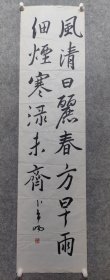 風清日麗春方早雨
細煙寒渌未齊